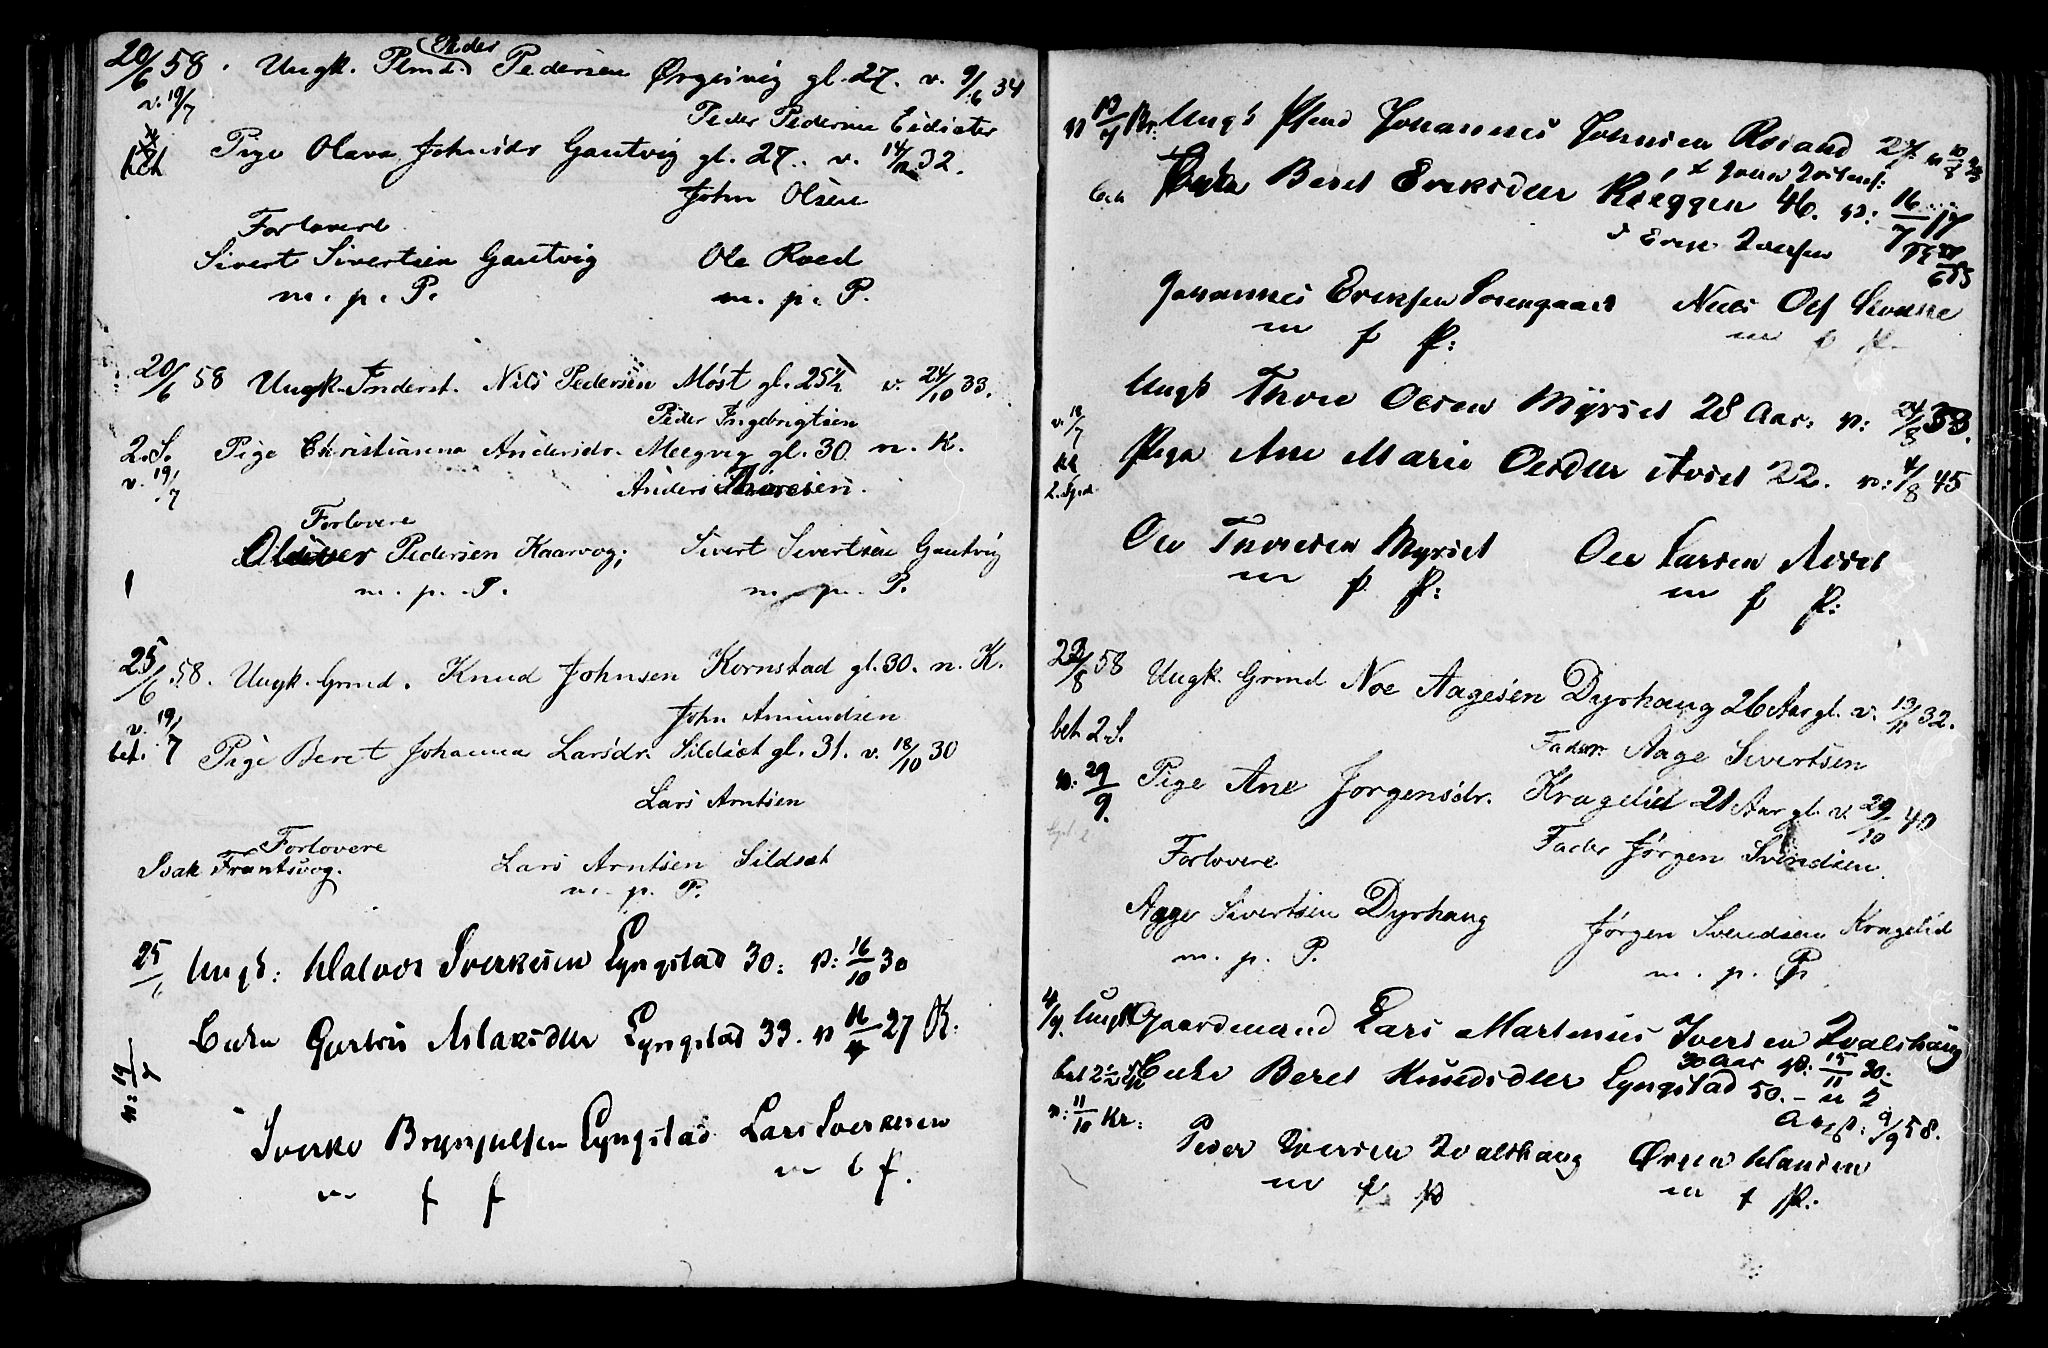 20/6 58. Ungk. Plmd. Peder Pedersen Ørgeivig gl. 27. v. 9/6 34
v. 19/7 Peder Pedersen Eidsæter
bet Pige Olava Johnsdr Gautvig gl. 27. v. 14/12 32.
John Olsen
Forlovere
Sivert Sivertsen Gautvig Ole Roed
m. p. P. m. p. P.
20/6 58 Ungk. Inderst. Nils Pedersen Møst gl. 25 1/2 v. 24/10 33.
Peder Ingebrigtsen
2.S. Pige Christianna Andersdr. Meegvig gl. 30 n. K.
v. 19/7 Anders
Forlovere
Pedersen Kaarvog; Sivert Sivertsen Gautvig
m. p. P. m. p. P.
25/6 58. Ungk. Grmd. Knud Johnsen Kornstad gl. 30. n. K.
John Amundsen
v. 19/7 bet. Pige Beret Johanna Larsdr. Sildset gl. 31. v. 18/10 30
Lars Arntsen
Forlovere
Isak Frantsvog. Lars Arntsen Sildset
m. p. P.
25/6 Ungk: Halvor Sverkesen Lyngstad 30: v: 16/10 30
Enke Gurtru Aslaksdtr Lyngstad 33. v 16/ 27 K.
v: 19/7
Sverke Brynjulfsen Lyngstad Lars Sverkesen
m f f m f f.
v 19/7 Kr: Ungk Plmd Johannes Johnsen Røsand 27. v 10/ 33
John
Enke Beret Eriksdtr Ræggen 46. v: 16/7 17
Erik Iversen
Johannes Eriksen Sorengaard Niels Ols
m p P: m p P.
Ungk Thore Olsen Myrset 28 Aar. v: 24/8 33.
v. 19/7
Pige Ane Marie Olsdtr Aoset 22. v: 4/8 45
2. Spd.
Ole Thoresen Myrset Ole Larsen Aoset
m p P: m p P:
23/8 58 Ungk. Grmd Noe Aagesen Dyrhaug 26 Aar gl. v. 13/11 32.
bet. 2.S. Fader Aage Sivertsen
v. 29/9. Pige Ane Jørgensdr. Kragelid 21 Aar gl. v. 29/10 40
Fader Jørgen Svendsen.
Forlovere
Agge Sivertsen Dyrhaug Jørgen Svendsen Kragelid
m. p. P. m. p. P
4/9. Ungk Gaardmand Lars Martinus Iversen Qvalshaug
30 Aar v. 15/11 30.
bet Enke Beret Knudsdtr Lyngstad 50.
v: 11/10 Kr: 9/9 58.
Peder Iversen Qvalshaug Ørjen Hansen
m p p m p P.